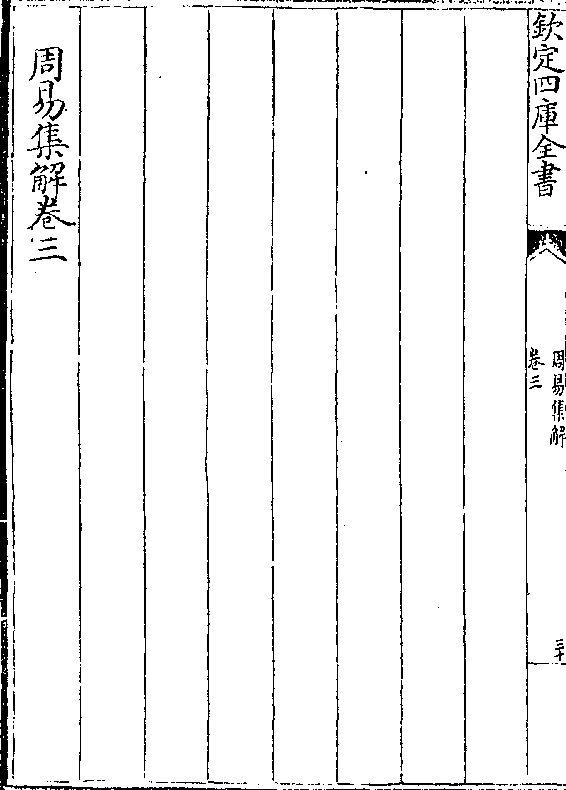 欽定四庫全書
周易集解
卷三
周易集解卷三